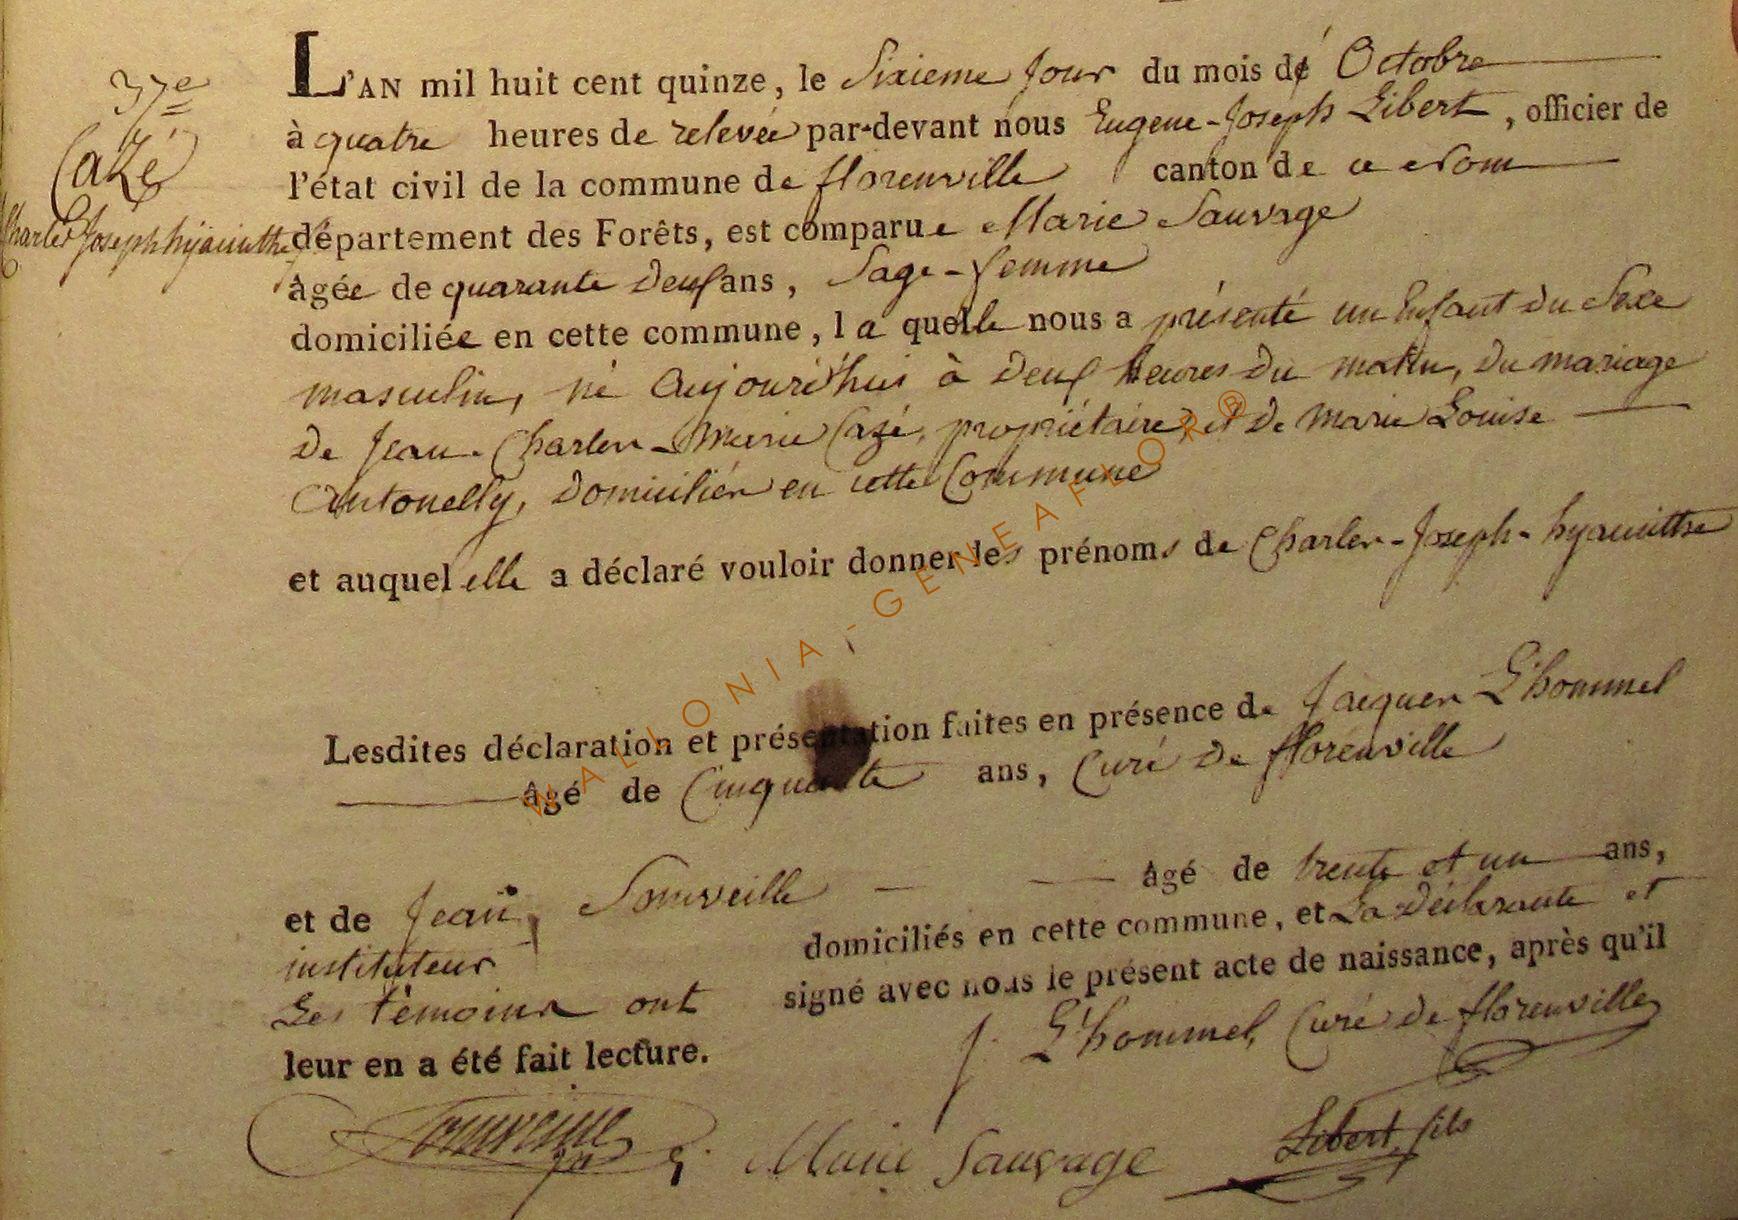 37e
Cazé
Charles Joseph hyacinthe
L'AN mil huit cent quinze, le Sixieme Jour du mois de Octobre
à quatre heures de relevée par-devant nous Eugene-Joseph Libert, officier de
l'état civil de la commune de florenville canton de ce nom
département des Forêts, est comparue Marie Sauvage
âgée de quarante deux ans, Sage-femme
domiciliée en cette commune, la quelle nous a présenté un Enfant du Sexe
masculin, né Aujourd'hui à deux heures du matin, du mariage
de Jean-Charles-Marie Cazé, propriétaire, et de Marie Louise
Antonelly, domiciliés en cette Commune
et auquel elle a déclaré vouloir donner les prénoms de Charles-Joseph-hyacinthe
Lesdites déclaration et présentation faites en présence de Jacques L'hommel
âgé de Cinquante ans, Curé de florenville
et de Jean, Somveille âgé de trente et un ans,
instituteur domiciliés en cette commune, et La Déclarante et
Les témoins ont signé avec nous le présent acte de naissance, après qu'il
leur en a été fait lecture.
J. L'hommel, Curé de florenville
Somveille
Marie Sauvage
Libert, fils
WALLONIA-GENEAFLOR®